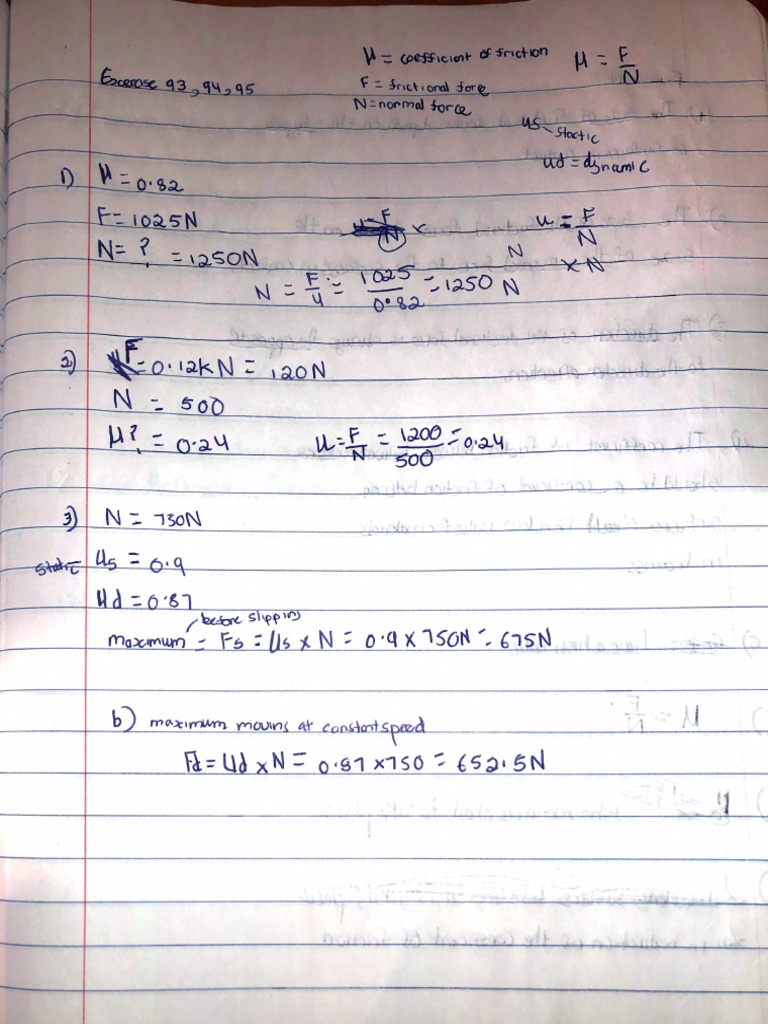 μ = coefficient of friction
μ = F/N
Excerase 93, 94, 95
F = frictional forc
N = normal force
us - stactic
ud = dynamic
1) μ = 0.82
F = 1025N
N = ? = 1250N
u = F/N
× N
N = F/μ = 1025/0.82 = 1250 N
2) F = 0.12kN = 120N
N = 500
μ? = 0.24
μ = F/N = 1200/500 = 0.24
3) N = 730N
static μs = 0.9
μd = 0.87
before slipping
maximum = Fs = μs × N = 0.9 × 750N = 675N
b) maximum moving at constant speed
Fd = μd × N = 0.87 × 750 = 652.5N